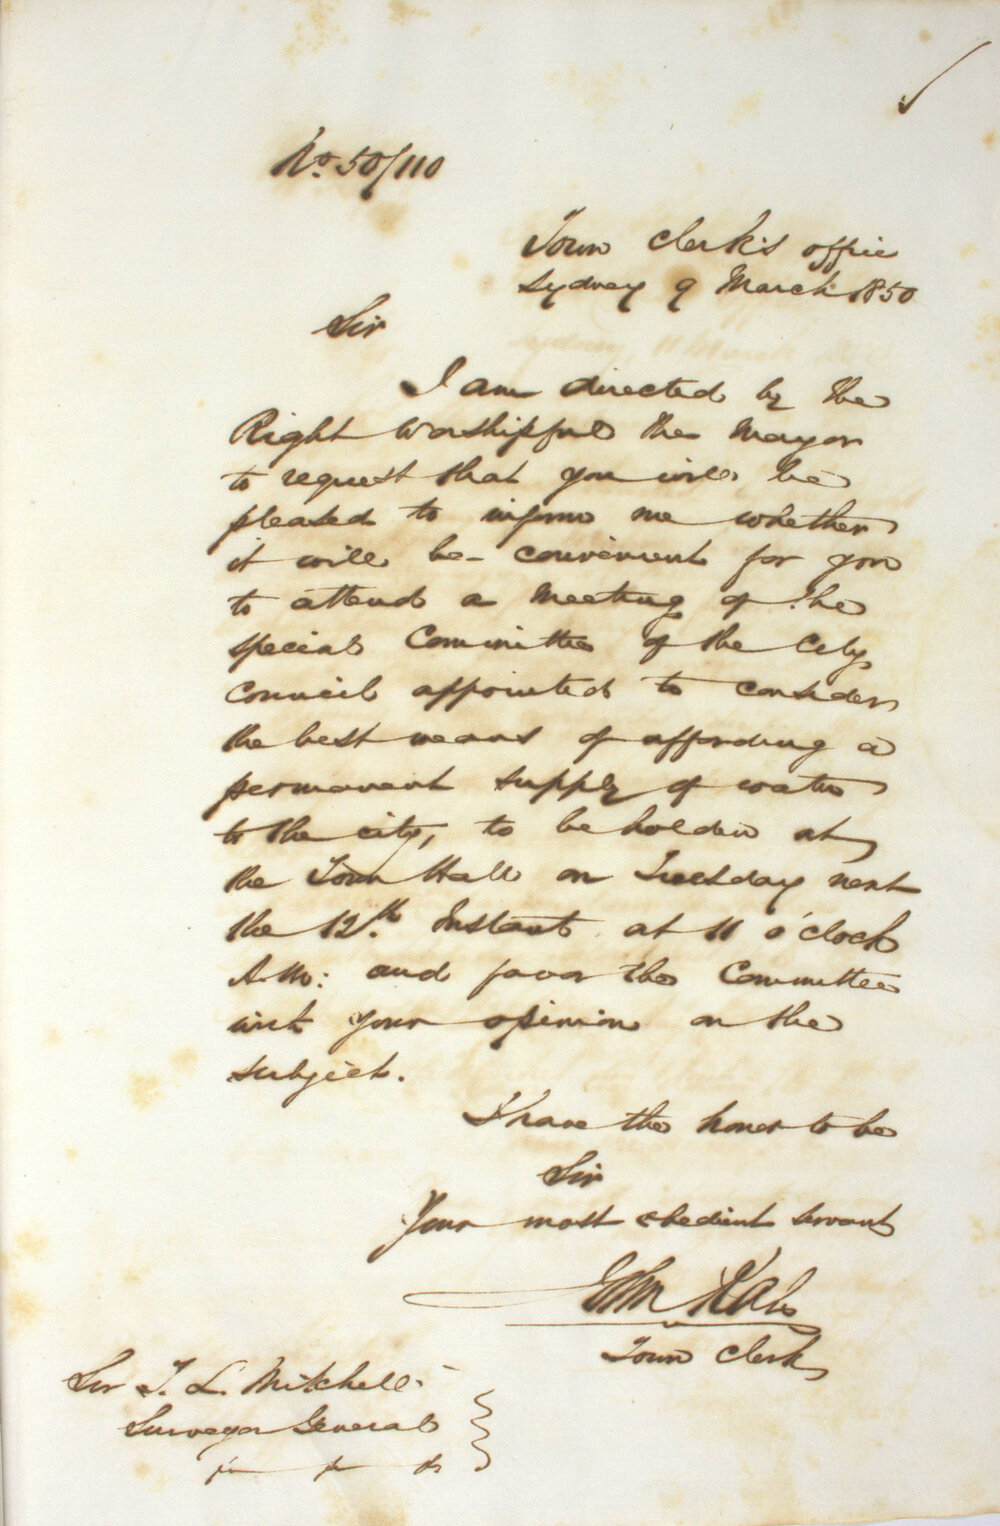 No. 50/110
Town Clerk's office
Sydney 9 March 1850
Sir
I am directed by the
Right Worshipful the Mayor
to request that you will be
pleased to inform me whether
it will be convenient for you
to attend a Meeting of the
special Committee of the City
Council appointed to consider
the best means of affording a
permanent supply of water
to the city, to be holden at
the Town Hall on Tuesday next
the 12th. Instant at 11 o'clock
A.M: and favor the Committee
with your opinion on the
subject.
I have the honor to be
Sir
Your most obedient servant
John
Town Clerk
Sir T. L. Mitchell
Surveyor General